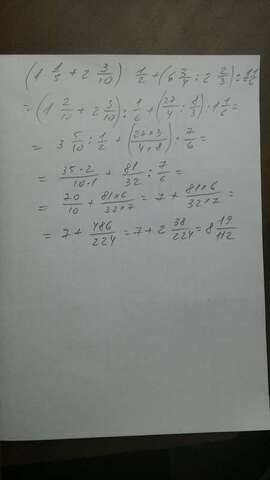 (1 1/5 + 2 3/10) 1/2 + (6 3/4 : 2 2/3) : 1 1/6 =
= (1 2/10 + 2 3/10) : 1/2 + (27/4 : 8/3) : 1 1/6 =
= 3 5/10 : 1/2 + (27×3/4×8) : 7/6 =
= 35·2/10·1 + 81/32 : 7/6 =
= 70/10 + 81×6/32×7 = 7 + 81×6/32×7 =
= 7 + 486/224 = 7 + 2 38/224 = 8 19/112